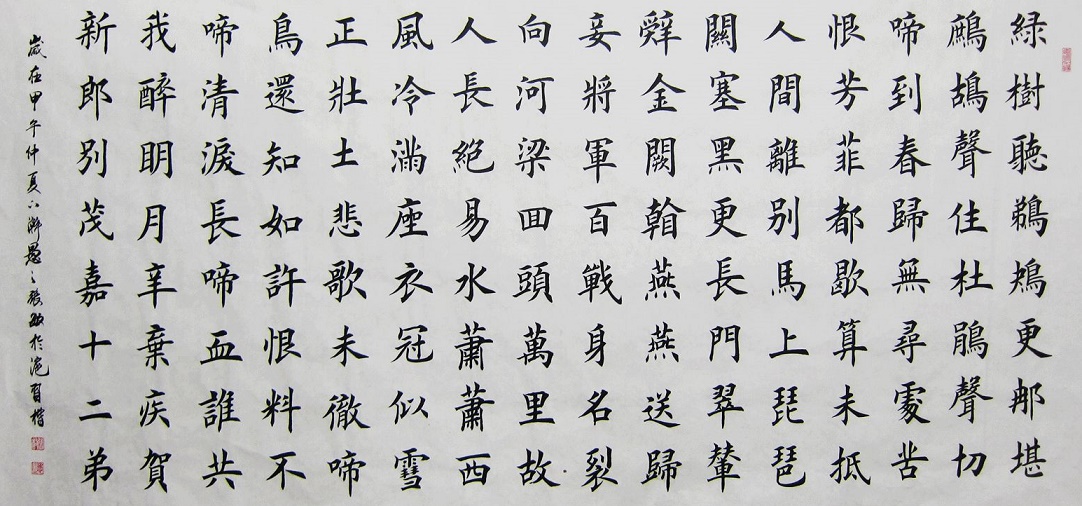 綠樹聽鵜鴂更那堪
鷓鴣聲住杜鵑聲切
啼到春歸無尋處苦
恨芳菲都歇算未抵
人間離別馬上琵琶
關塞黑更長門翠輦
辭金闕看燕燕送歸
妾將軍百戰身名裂
向河梁回頭萬里故
人長絕易水蕭蕭西
風冷滿座衣冠似雪
正壯士悲歌未徹啼
鳥還知如許恨料不
啼清淚長啼血誰共
我醉明月辛棄疾賀
新郎別茂嘉十二弟
歲在甲午仲夏下澣於滬習楷